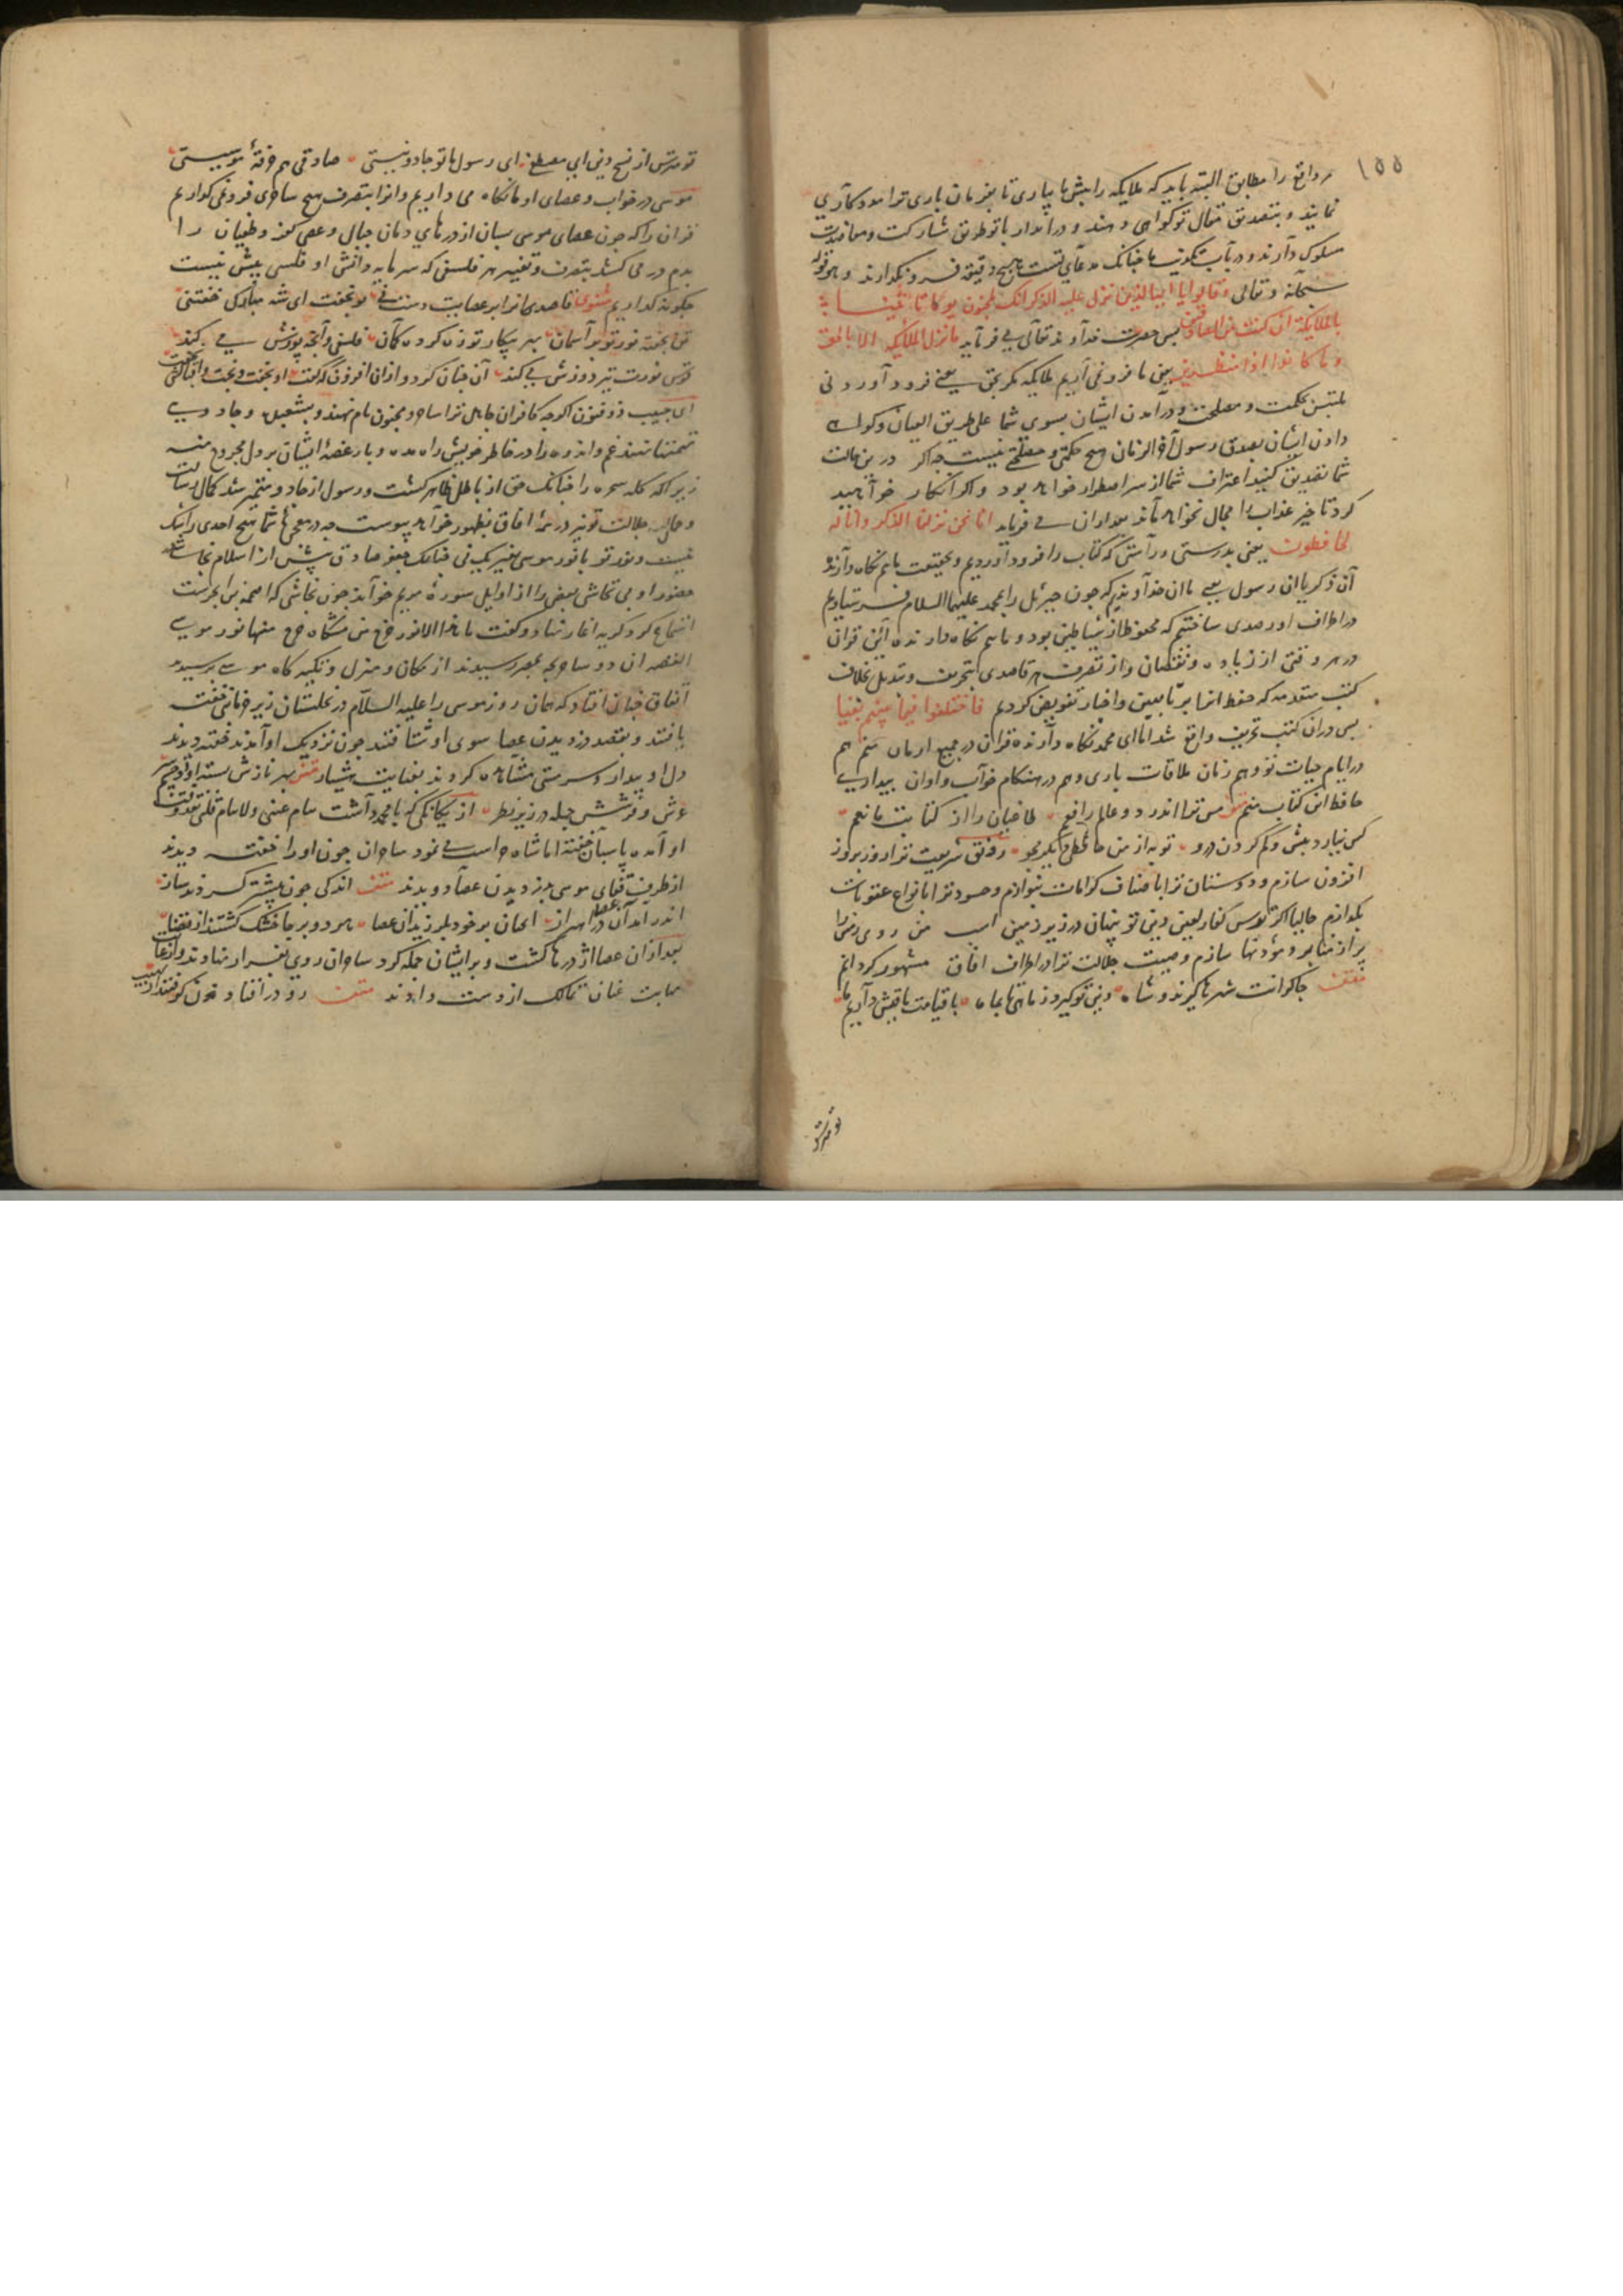 ١٥٥
واقع را مطابق البته باید که ملایکه را پیش ما بیاری تا بفرمان باری ترا مدد کاری
نمایند و بتصدیق مقال تو گواهی دهند و در انذار با تو طریق مشارکت و معاضدت
مسلوک دارند و در باب تکذیب ما چنانک مدعای تست هیچ دقیقه فرو نگذارند و هو قوله
سبحانه و تعالی و قالوا یا ایها الذین نزل علیه الذکر انک لمجنون لو ما تاتینا
بالملایکة ان کنت من الصادقین پس حضرت خداوند تعالی می فرماید ما ننزل الملایکه الا بالحق
و ما کانوا اذا منظرین یعنی ما فرو نمی آریم ملایکه مگر بحق یعنی فرود آوردنی
ملتبس بحکمت و مصلحت و در آمدن ایشان بسوی شما علی طریق العیان و گواهی
دادن ایشان بصدق رسول آخر الزمان هیچ حکمتی و مصلحتی نیست چه اگر درین حالت
شما تصدیق کنید اعتراف شما از سر اضطرار خواهد بود و اگر انکار خواهید
کرد تاخیر عذاب را مجال نخواهد ماند بعد از آن می فرماید انا نحن نزلنا الذکر و انا له
لحافظون یعنی بدرستی و راستی که کتاب را فرود آوردیم و بحقیقت ما هم نگاه دارنده
آن ذکر یا آن رسول یعنی ما آن خداوندیم که چون جبرئل را بمحمد علیهما السلام فرستادیم
در اطراف او رصدی ساختیم که محفوظ از شیاطین بود و ما هم نگاه دارنده این قران
در هر وقتی از زیاده و نقصان و از تصرف هر قاصدی بتحریف و تبدیل بخلاف
کتب متقدمه که حفظ انها بر ربانیین و احبار تفویض کردیم فاختلفوا فیما بینهم بغیا
پس در ان کتب تحریف واقع شد اما ای محمد نگاه دارنده قران در جمیع ازمان منم هم
در ایام حیات تو و هم زمان ملاقات باری و هم در هنگام خواب و اوان بیداری
حافظ این کتاب منم من ترا اندر دو عالم رافعم طاغیان را از کتابت مانعم
کس نیارد بیش و کم کردن درو تو به از من حافظی دیگر مجو رونق شریعت ترا روز بروز
افزون سازم و دوستان ترا باصناف کرامات بنوازم و حسود ترا بانواع عقوبات
بگدازم حالیا اگر از ترس کفار لعین دین تو پنهان در زیر زمین است من روی زمین را
پر از منابر و مؤذنها سازم و صیت جلالت ترا در اطراف افاق مشهور گردانم
چاکرانت شهرها گیرند و شاه دین تو گیرد ز ماهی تا بماه تا قیامت باقیش داریم ما
تو مترس
تو مترس از نسخ دین ای مصطفی ای رسول ما تو جادو نیستی صادقی هم خرقهٔ موسیستی
موسی در خواب و عصای او ما نگاه می داریم و انرا بتصرف هیچ ساحری فرو نمی گذاریم
قران را که چون عصای موسی بسان اژدرهای دمان حبال و عصی کفر و طغیان را
بدم در می کشد بتصرف و تغییر هر فلسفی که سرمایه دانش او فلسی بیش نیست
چگونه گذاریم مثنوی قاصدی انرا بر عصایت دست نی تو بخفت ای شه مبارک خفتنی
تن بخفته نور تو بر آسمان بهر پیکار تو زه کرده کمان فلسفی و آنچه پوزش می کند
قوس نورت تیر دوزش می کند آن چنان کرد و از آن افزون که گفت او بخفت و بخت و اقبالش نخفت
ای حبیب ذو فنون اگر چه کافران جاهل ترا ساحر و مجنون نام نهند و بشعبده و جادویی
تهمتها نهند غم و اندوه را در خاطر خویش راه مده و بار غصهٔ ایشان بر دل مجروح منه
زیرا که کله سحره را چنانک حق از باطل ظاهر گشت و رسول از جادو متمیز شد کمال رسالت
و حال جلالت تو نیز در همهٔ افاق بظهور خواهد پیوست چه در معجزهای شما هیچ احدی را شک
نیست و نور تو با نور موسی بغیر یک نی
حضور او بی تحاشی بعضی را از اوایل سورهٔ مریم خواند چون نجاشی که اصحمه بن ابجرست
استماع کرد گریه اغاز نهاد و گفت ما هذا الا نور خرج من مشکاة خرج منها نور موسی
القصه آن دو ساحر بچه بمصر رسیدند از مکان و منزل و تکیه گاه موسی پرسیدند
اتفاق چنان افتاد که همان روز موسی را علیه السلام در نخلستان زیر خرمائی خفته
یافتند و بقصد دزدیدن عصا سوی او شتافتند چون نزدیک او آمدند خفته دیدند
دل او بیدار و سرمستی مشاهده کردند بغایت هشیار بهر نازش بسته او دو چشم سر
عرش و فرشش جمله در زیر نظر از یگانگی که با محمد داشت تنام عینی و لا ینام قلبی صفت وقت
او آمده پاسبان خفته اما شاه حراست می نمود ساحران چون او را خفته دیدند
از طرف قفای موسی بدزدیدن عصا دویدند اندکی چون پیشتر کردند ساز
اندر آمد آن عصا در اهتزاز انچنان بر خود بلرزید آن عصا هر دو بر جا خشک گشتند از قضا
بعد از ان عصا اژدرها گشت و بر ایشان حمله کرد ساحران روی بفرار نهادند و از غایت
مهابت عنان تمالک از دست دادند رو در افتادن گرفتند از نهیب